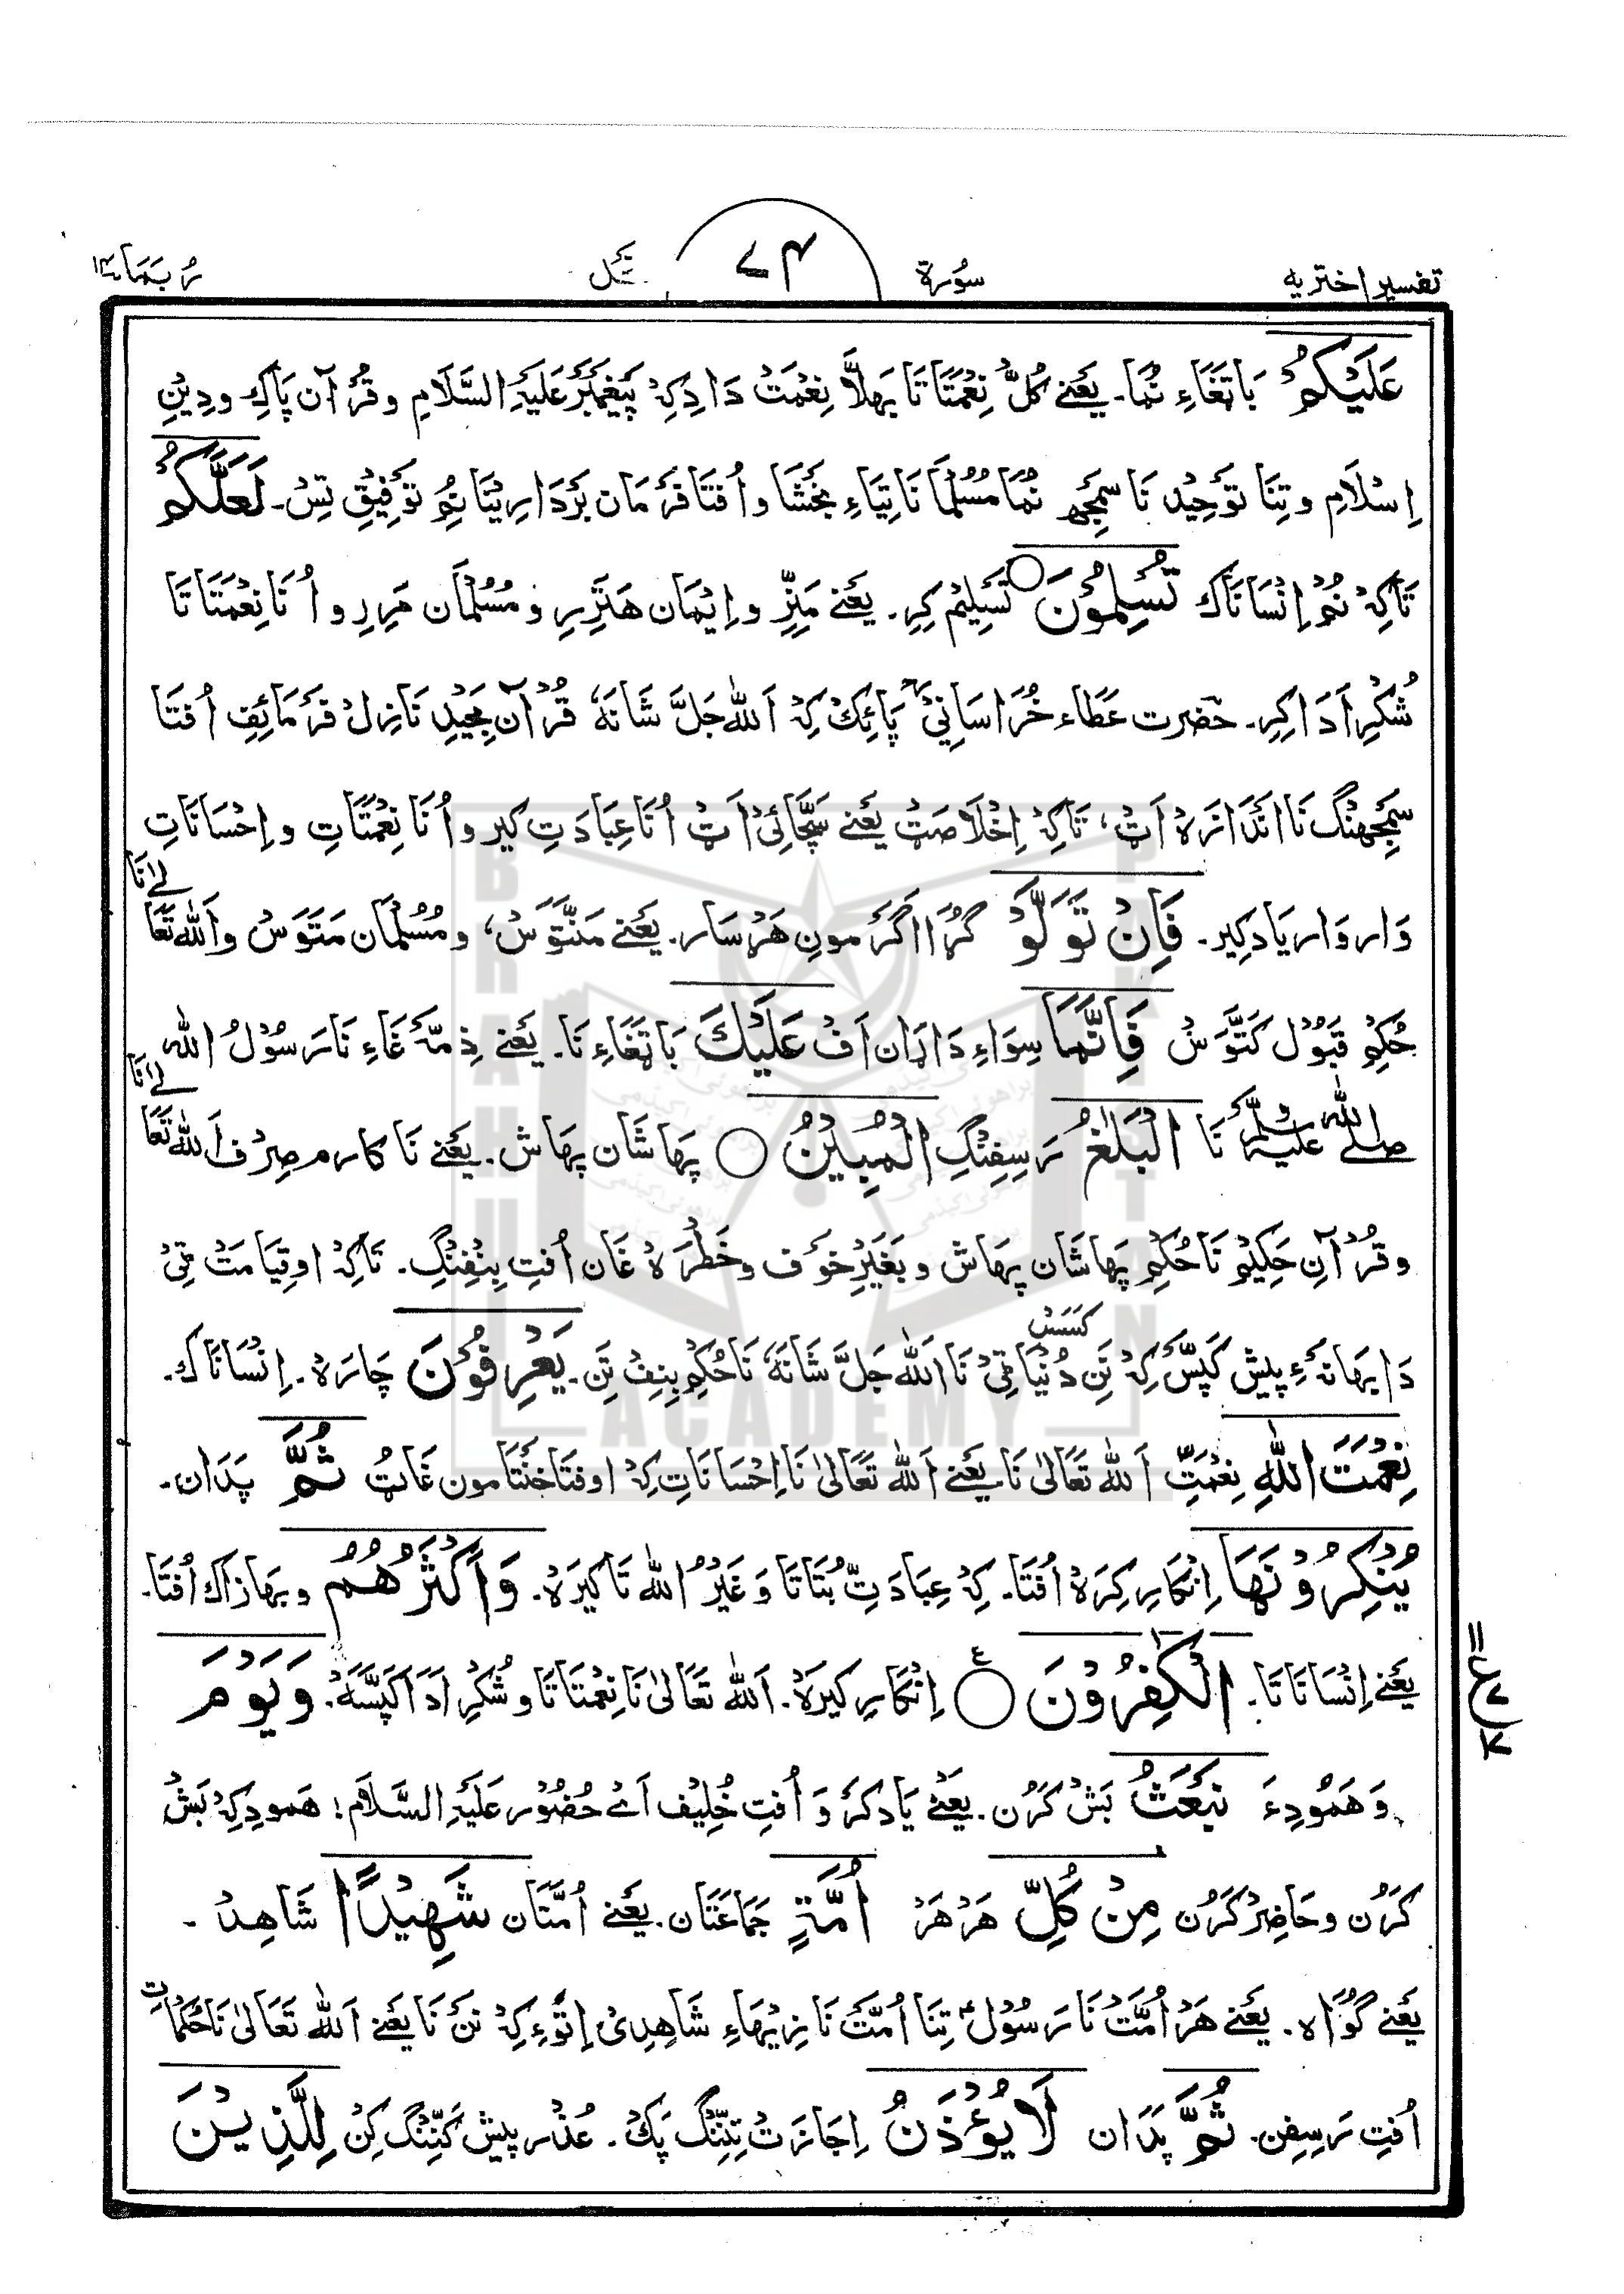 تفسیر اختریه سُورة ٧٤ نحل رُبَمَا ١٤
عَلَیْکُمْ بَاتَغَاءِ نُمَا۔ یَعْنے کُلّ نِعْمَتَاتَا بَھلَّا نِعْمَتْ دَادِکِہْ پَیْغَمْبَرْ عَلَیْہِ السَّلَامِ و قُرْآن پَاکِ و دِیْنِ
اِسْلَامِ و تِنَا تَوْحِیْد نَا سَمِجھ نُمَا مُسُلْمَانَاتِیَاءِ بَخْشَا و اُفتَا فَرْمَان بَرْدَارِیْئَا نُمِ تَوْفِیْقِ تِسْ۔ لَعَلَّکُمْ
تَاکِہْ نُمْ اِنْسَانَاک تُسْلِمُوْنَ ○ تَسْلِیْم کِرِ۔ یَعْنے مَنِّرِ و اِیْمَان ھَتِّرِرِ و مُسْلمَان مَرِرِ و اُنَا نِعْمَتَاتَا
شُکْرِ اَدَا کِرِ۔ حَضرت عَطَاء خُرَاسَانِیْ پَائِکْ کِہْ اَللّٰہ جَلَّ شَانَہٗ قُرْآن مَجِیْدِ نَازِلْ فَرْمَائِفِ اُفتَا
سَمِجھِنْگ نَا اَنْدَازَہ اَٹْ، تَاکِہْ اِخْلَاصَٹْ یَعْنے سَچَّائِیْ اَٹْ اُنَا عِبَادَتِ کِیر و اُنَا نِعْمَتَاتِ و اِحْسَانَاتِ
وَار وَار یَاد کِیر۔ فَاِنْ تَوَلَّوْ گُڑَا اَگَر مونِ ھَڑْسَار۔ یَعْنے مَنَّتَوَسْ، و مُسْلمَان مَتَوَسْ و اَللّٰہ تَعَالےٰ اَنَا
حُکمِ قَبُوْل کَتَّوَسْ فَاِنَّمَا سِوَاءِ دَاڑَان اَفْ عَلَیْكَ بَاتَغَاءِ نَا۔ یَعْنے ذِمَّہ غَاءِ نَا رَسُوْلُ اللّٰہ
صلے اللّٰہ علیہ وسلم نَا الْبَلٰغُ رَسِفِنْگِ الْمُبِیْنُ ○ پھَاشَان پھَاش۔ یَعْنے نَا کَارم صِرْف اَللّٰہ تَعَالےٰ اَنَا
و قُرْآنِ حَکِیْم نَا حُکْمِ پھَاشَان پھَاش و بَغَیْرِ خَوف و خَطْرَہ غَان اُفتِ بِنْفِنْگِ۔ تَاکِہْ او قِیَامَتْ ٹِیْ
دَا بَھانَہ ءِ پیش کَپَّسْ کِہْ نَن دُنْیَا ٹِیْ نَا اَللّٰہ جَلَّ شَانَہٗ نَا حُکمِ بِنِفْتَن۔ یَعْرِفُوْنَ چَارَہْ۔ اِنْسَانَاک۔
کَسَسْ
نِعْمَتَ اللّٰہِ نِعْمَتِّ اَللّٰہ تَعَالیٰ نَا یَعْنے اَللّٰہ تَعَالیٰ نَا اِحْسَانَاتِ کِہْ اوفتَا خَنْتَا مون غَاٹْ ثُمَّ پَدَان۔
یُنْکِرُوْنَھَا اِنْکَارِ کِرَہْ اُفتَا۔ کِہْ عِبَادَتِّ بُتَاتَا وَ غَیْرُ اللّٰہ تَا کِیرَہْ۔ وَاَکْثَرُھُمُ و بھَازَاک اُفتَا۔
یَعْنے اِنْسَانَاتَا۔ الْکٰفِرُوْنَ ○ ع اِنْکَارِ کِیرَہْ۔ اَللّٰہ تَعَالیٰ نَا نِعْمتَاتَا و شُکْرِ اَدَا کَپَّسَہْ۔ وَیَوْمَ
وَ ھَمُودِءَ نَبْعَثُ بَشْ کَرُن۔ یَعْنے یَاد کَر وَ اُفتِ خُلِیْف اَے حُضُوْر عَلَیْہِ السَّلَام! ھَمودِ کِہْ بَشْ
کَرُن و حَاضِرْ کَرُن مِنْ کُلِّ ھَرْ ھَرْ اُمَّۃٍ جَمَاعَتَان۔ یَعْنے اُمَّتَان شَھِیْدًا شَاھِدْ۔
یَعْنے گَوَاہ۔ یَعْنے ھَرْ اُمَّتْ نَا رَسُوْل تِنَا اُمَّتْ نَا زِیْھَاءِ شَاھِدِیْ اِتُوْءِ کِہْ نَنْ نَا یَعْنے اَللّٰہ تَعَالیٰ نَا حُکمَاتِ
اُفتِ رَسِفِن۔ ثُمَّ پَدَان لَا یُؤْذَنُ اِجَازَتْ تِنِّنْگ پَکْ۔ عُذْر پیش کَنِّنْگ کِن لِلَّذِیْنَ
BRAHUI
ACADEMY
PAKISTAN